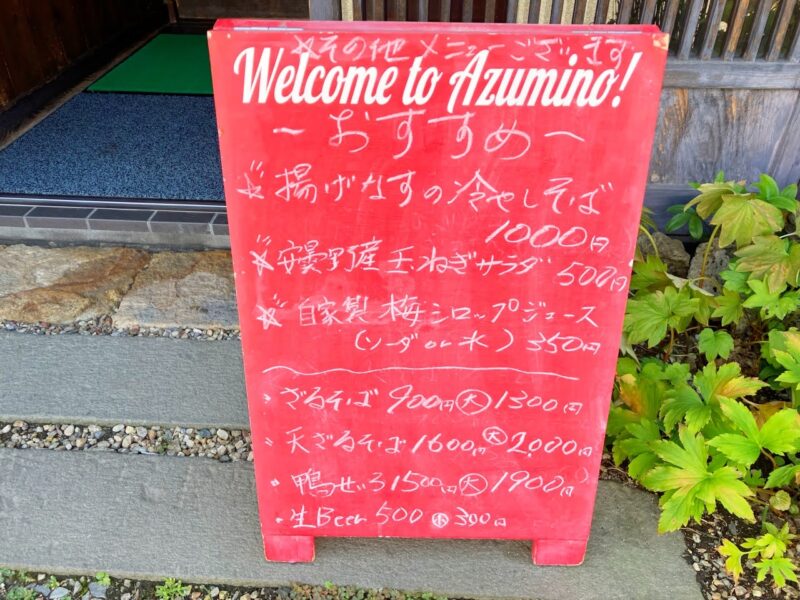 ☆その他メニューございます
Welcome to Azumino!
〜おすすめ〜
☆揚げなすの冷やしそば
1000円
☆安曇野産玉ねぎサラダ 500円
☆自家製梅シロップジュース
(ソーダor水) 350円
・ざるそば 900円 大 1300円
・天ざるそば 1600円 大 2,000円
・鴨せいろ 1500円 大 1900円
・生Beer 500 小 300円